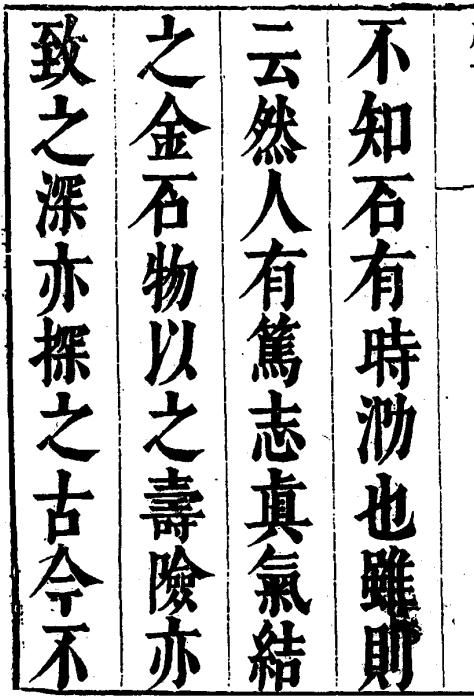 不知石有時泐也雖則
云然人有篤志眞氣結
之金石物以之壽險亦
致之深亦探之古今不